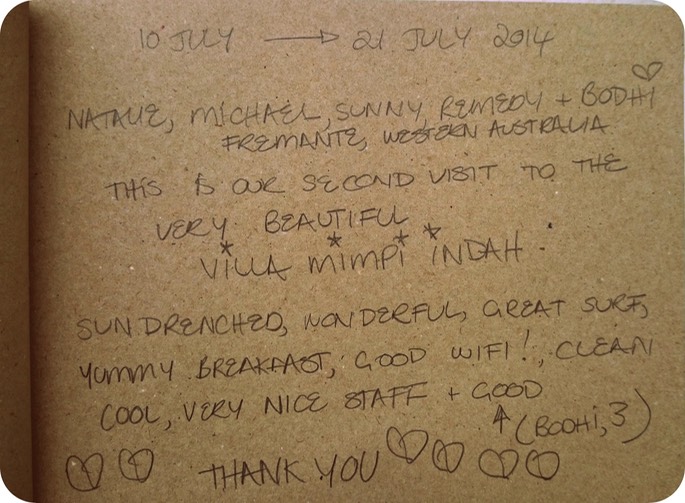 10 JULY → 21 JULY 2014
NATALIE, MICHAEL, SUNNY, REMEDY + BODHI
FREMANTE, WESTERN AUSTRALIA.
THIS IS OUR SECOND VISIT TO THE
VERY BEAUTIFUL
VILLA MIMPI INDAH.
SUN DRENCHED, WONDERFUL, GREAT SURF,
YUMMY BREAKFAST, GOOD WIFI!, CLEAN
COOL, VERY NICE STAFF + GOOD
↑ (BODHI, 3)
THANK YOU